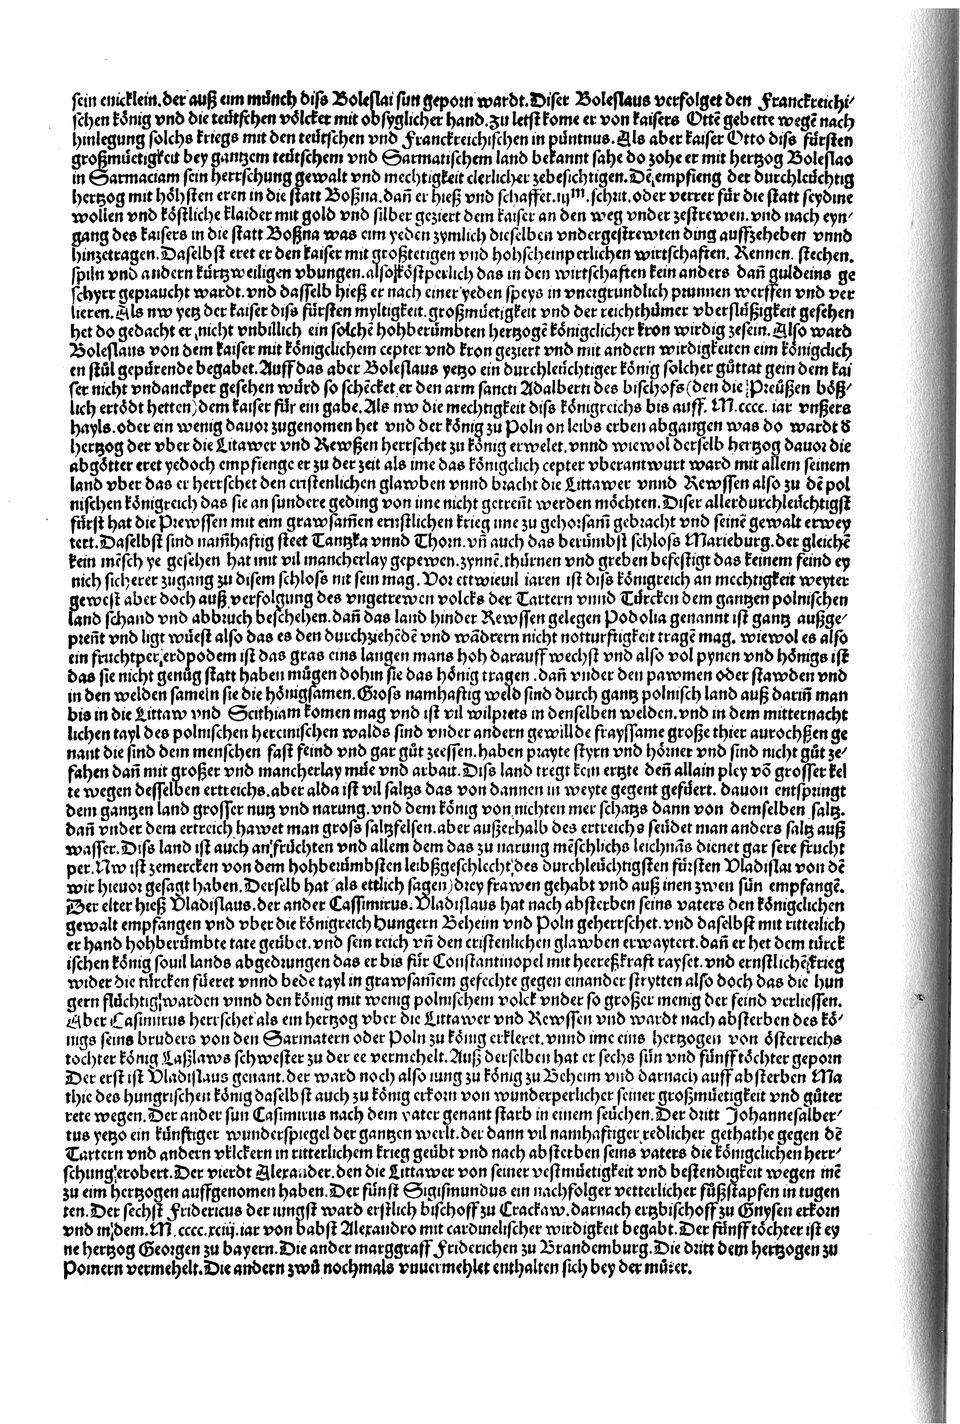 sein enicklein. der auß eim münch diss Boleslai sun geporn wardt. Diser Boleslaus verfolget den Franckreichi-
schen könig vnd die teütschen völcker mit obsyglicher hand. Zu letst kome er von kaisers Ottē gebette wegē nach
hinlegung solchs kriegs mit den teütschen vnd Franckreichischen in püntnus. Als aber kaiser Otto diss fürsten
großmüetigkeit bey gantzem teütschem vnd Sarmatischem land bekannt sahe do zohe er mit hertzog Boleslao
in Sarmaciam sein herrschung gewalt vnd mechtigkeit clerlicher zebesichtigen. Dē empfieng der durchleüchtig
hertzog mit höhsten eren in die statt Boßna. dañ er hieß vnd schaffet .iijm. schrit. oder verrer für die statt seydine
wollen vnd köstliche klaider mit gold vnd silber geziert dem kaiser an den weg vnder zestrewen. vnd nach eyn-
gang des kaisers in die statt Boßna was eim yeden zymlich dieselben vndergestrewten ding auffzeheben vnnd
hinzetragen. Daselbst eret er den kaiser mit großtetigen vnd hohscheinperlichen wirtschaften. Rennen. stechen.
spiln vnd andern kürtzweiligen vbungen. also köstperlich das in den wirtschaften kein anders dañ guldeins ge
schyrr gepraucht wardt. vnd dasselb hieß er nach einer yeden speys in vnergrundlich prunnen werffen vnd ver
lieren. Als nw yetz der kaiser diss fürsten myltigkeit. großmüetigkeit vnd der reichthümer vberflüßigkeit gesehen
het do gedacht er nicht vnbillich ein solchē hohberümbten hertzogē königclicher kron wirdig zesein. Also ward
Boleslaus von dem kaiser mit königclichem cepter vnd kron geziert vnd mit andern wirdigkeiten eim königclich
en stůl gepürende begabet. Auff das aber Boleslaus yetzo ein durchleüchtiger könig solcher gůttat gein dem kai
ser nicht vndanckper gesehen würd so schēcket er den arm sancti Adalberti des bischofs (den die Preüßen böß-
lich ertödt hetten) dem kaiser für ein gabe. Als nw die mechtigkeit diss königreichs bis auff. M.cccc. iar vnßers
hayls. oder ein wenig dauor zugenomen het vnd der könig zu Poln on leibs erben abgangen was do wardt d̄
hertzog der vber die Litawer vnd Rewßen herrschet zu könig erwelet. vnnd wiewol derselb hertzog dauor die
abgötter eret yedoch empfienge er zu der zeit als ime das königclich cepter vberantwurt ward mit allem seinem
land vber das er herrschet den cristenlichen glawben vnnd bracht die Littawer vnnd Rewssen also zu dē pol
nischen königreich das sie an sundere geding von ime nicht getreñt werden möchten. Diser allerdurchleüchtigst
fürst hat die Prewssen mit eim grawsam̄en ernstlichen krieg ime zu gehorsam̄ gebracht vnd seinē gewalt erwey
tert. Daselbst sind nam̄haftig steet Tantzka vnnd Thorn. vñ auch das berümbst schloss Marieburg. der gleichē
kein mēsch ye gesehen hat mit vil mancherlay gepewen. zynnē. thürnen vnd greben befestigt das keinem feind ey
nich sicherer zugang zu disem schloss nit sein mag. Vor ettwieuil iaren ist diss königreich an mechtigkeit weyter
gewest aber doch auß verfolgung des vngetrewen volcks der Tartern vnnd Türcken dem gantzen polnischen
land schand vnd abbruch beschehen. dañ das land hinder Rewssen gelegen Podolia genannt ist gantz außge-
preñt vnd ligt wüest also das es den durchziehēdē vnd wādrern nicht notturftigkeit tragē mag. wiewol es also
ein fruchtper erdpodem ist das gras eins langen mans hoh darauff wechst vnd also vol pynen vnd hönigs ist
das sie nicht genůg statt haben mügen dohin sie das hönig tragen. dañ vnder den pawmen oder stawden vnd
in den welden sameln sie die hönigsamen. Gross namhaftig weld sind durch gantz polnisch land auß dariñ man
bis in die Littaw vnd Scithiam komen mag vnd ist vil wilprets in denselben welden. vnd in dem mitternacht
lichen tayl des polnischen hercinischen walds sind vnder andern gewillde frayssame große thier aurochßen ge
nant die sind dem menschen fast feind vnd gar gůt zeessen. haben prayte styrn vnd hörner vnd sind nicht gůt ze-
fahen dañ mit großer vnd mancherlay müe vnd arbait. Diss land tregt kein ertzte deñ allain pley vō grosser kel
te wegen desselben ertreichs. aber alda ist vil saltzs das von dannen in weyte gegent gefüert. dauon entspringt
dem gantzen land grosser nutz vnd narung. vnd dem könig von nichten mer schatzs dann von demselben saltz.
dañ vnder dem ertreich hawet man gross saltzfelsen. aber außerhalb des ertreichs seüdet man anders saltz auß
wasser. Diss land ist auch an früchten vnd allem dem das zu narung mēschlichs leichnās dienet gar sere frucht
per. Nw ist zemercken von dem hohberümbsten leibßgeschlecht des durchleüchtigsten fürsten Vladislai von dē
wir hieuor gesagt haben. Derselb hat (als ettlich sagen) drey frawen gehabt vnd auß inen zwen sün empfangē.
Der elter hieß Vladislaus. der ander Cassimirus. Vladislaus hat nach absterben seins vaters den königclichen
gewalt empfangen vnd vber die königreich Hungern Beheim vnd Poln geherrschet. vnd daselbst mit ritterlich
er hand hohberümbte tate geübet. vnd sein reich vñ den cristenlichen glawben erwaytert. dañ er het dem türck
ischen könig souil lands abgedrungen das er bis für Constantinopel mit heereßkraft rayset. vnd ernstlichē krieg
wider die türcken füeret vnnd bede tayl in grawsam̄em gefechte gegen einander strytten also doch das die hun
gern flüchtig warden vnnd den könig mit wenig polnischem volck vnder so großer menig der feind verliessen.
Aber Casimirus herrschet als ein hertzog vber die Littawer vnd Rewssen vnd wardt nach absterben des kö-
nigs seins bruders von den Sarmatern oder Poln zu könig erkleret. vnnd ime eins hertzogen von österreichs
tochter könig Laßlaws schwester zu der ee vermehelt. Auß derselben hat er sechs sün vnd fünff töchter geporn
Der erst ist Vladislaus genant. der ward noch also iung zu könig zu Beheim vnd darnach auff absterben Ma
thie des hungrischen könig daselbst auch zu könig erkorn von wunderperlicher seiner großmüetigkeit vnd güter
rete wegen. Der ander sun Casimirus nach dem vater genant starb in einem seüchen. Der dritt Johannesalber-
tus yetzo ein künftiger wunderspiegel der gantzen werlt. der dann vil namhaftiger redlicher gethathe gegen dē
Tartern vnd andern vlckern in ritterlichem krieg geübt vnd nach absterben seins vaters die königclichen herr-
schung erobert. Der vierdt Alexander. den die Littawer von seiner vestmüetigkeit vnd bestendigkeit wegen inē
zu eim hertzogen auffgenomen haben. Der fünft Sigismundus ein nachfolger vetterlicher fůßstapfen in tugen
ten. Der sechst Fridericus der iungst ward erstlich bischoff zu Crackaw. darnach ertzbischoff zu Gnysen erkorn
vnd in dem. M.cccc.xciij. iar von babst Alexandro mit cardinelischer wirdigkeit begabt. Der fünff töchter ist ey
ne hertzog Georgen zu bayern. Die ander marggraff Friderichen zu Brandemburg. Die dritt dem hertzogen zu
Pomern vermehelt. Die andern zwů nochmals vnuermehlet enthalten sich bey der můter.